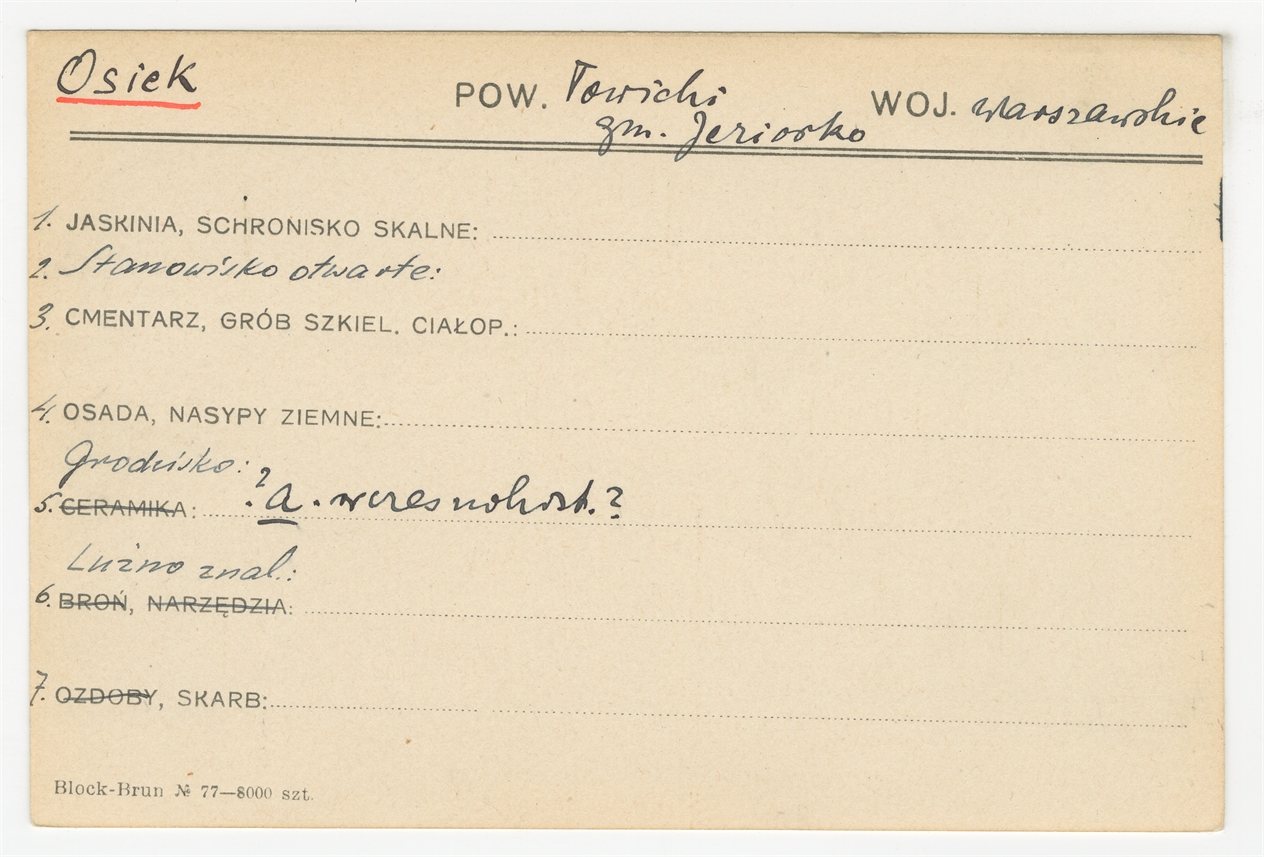 Osiek POW. Łowicki WOJ. warszawskie
gm. Jeziorko
1. JASKINIA, SCHRONISKO SKALNE:
2. Stanowisko otwarte:
3. CMENTARZ, GRÓB SZKIEL. CIAŁOP.:
4. OSADA, NASYPY ZIEMNE:
Grodzisko:
5. CERAMIKA: ? a. wczesnohist.?
Luźno znal.:
6. BROŃ, NARZĘDZIA:
7. OZDOBY, SKARB:
Block-Brun № 77—8000 szt.